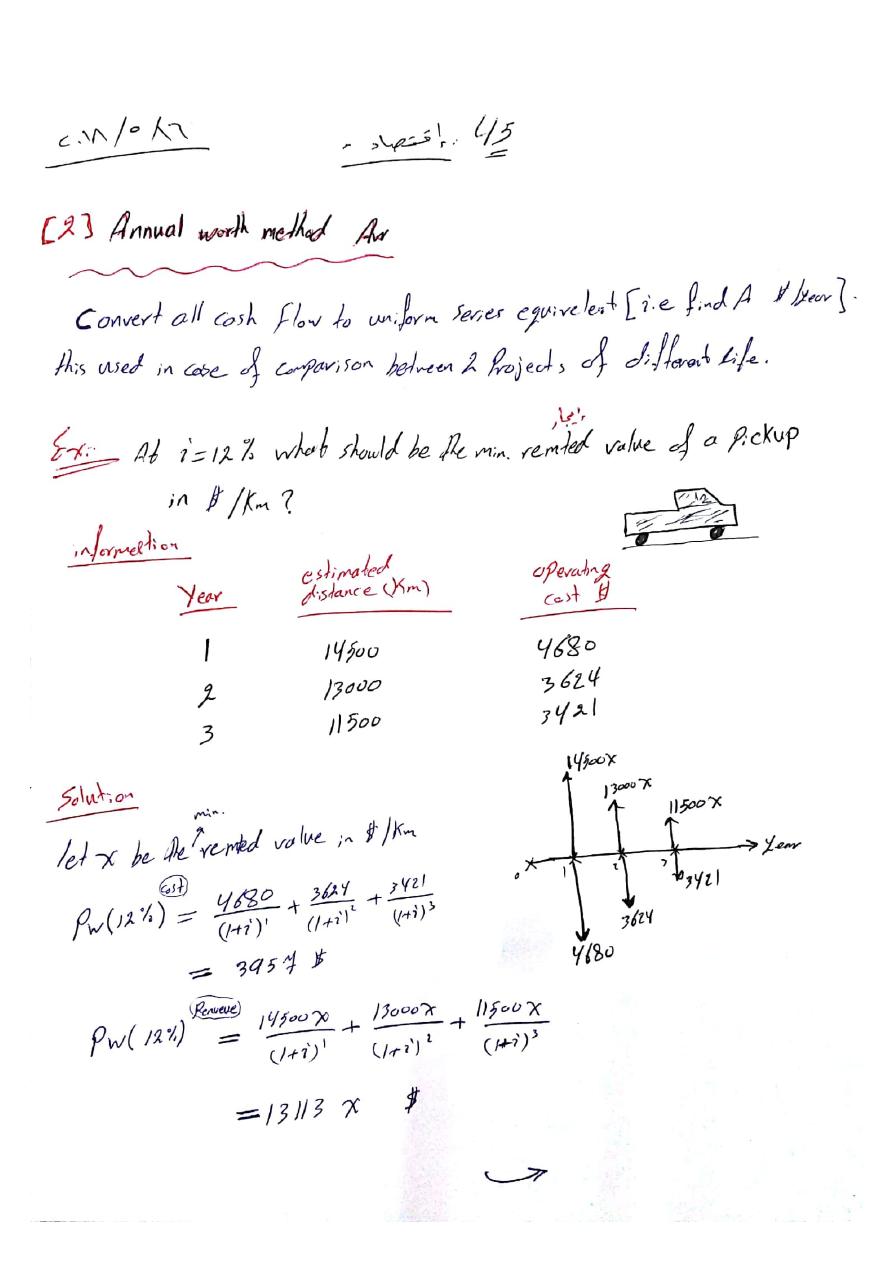 إقتصاد 4/5
[2] Annual worth method Aw
Convert all cash flow to uniform series equivelent [i.e find A $/year].
this used in case of comparison between 2 Projects of different life.
إيجار
Ex:- At i=12% what should be the min. remted value of a Pickup
in $/Km?
informeltion
Year estimated distance (Km) operating cost $
1 14500 4680
2 13000 3624
3 11500 3421
Solution
min.
let x be the remted value in $/Km
Pw(12%) cost = 4680/(1+i)¹ + 3624/(1+i)² + 3421/(1+i)³
= 3957 $
Pw(12%) Renueve = 14500x/(1+i)¹ + 13000x/(1+i)² + 11500x/(1+i)³
= 13113 x $
14500x
13000x
11500x
0 1 2 3 Year
3421
3624
4680